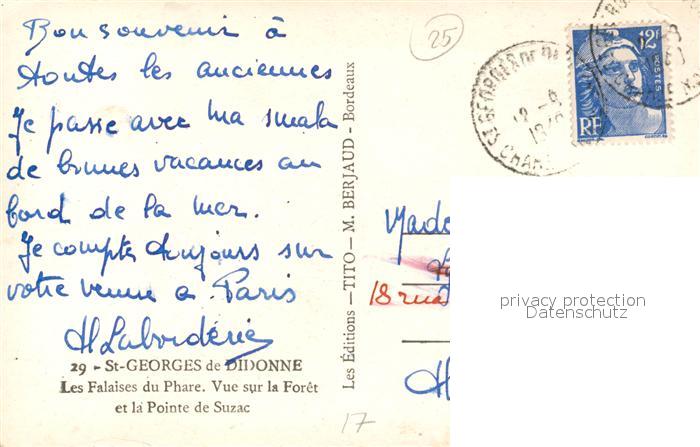 Bon souvenir à
toutes les anciennes
Je passe avec ma smala
de bonnes vacances au
bord de la mer.
Je compte toujours sur
votre venue à Paris
HLaborderie
29 - St-GEORGES de DIDONNE
Les Falaises du Phare. Vue sur la Forêt
et la Pointe de Suzac
Les Éditions — TITO — M. BERJAUD - Bordeaux
25
17
ST GEORGES DE
12 - 8
CHARE
12F
POSTES
RF
Made
18 rue
privacy protection
Datenschutz